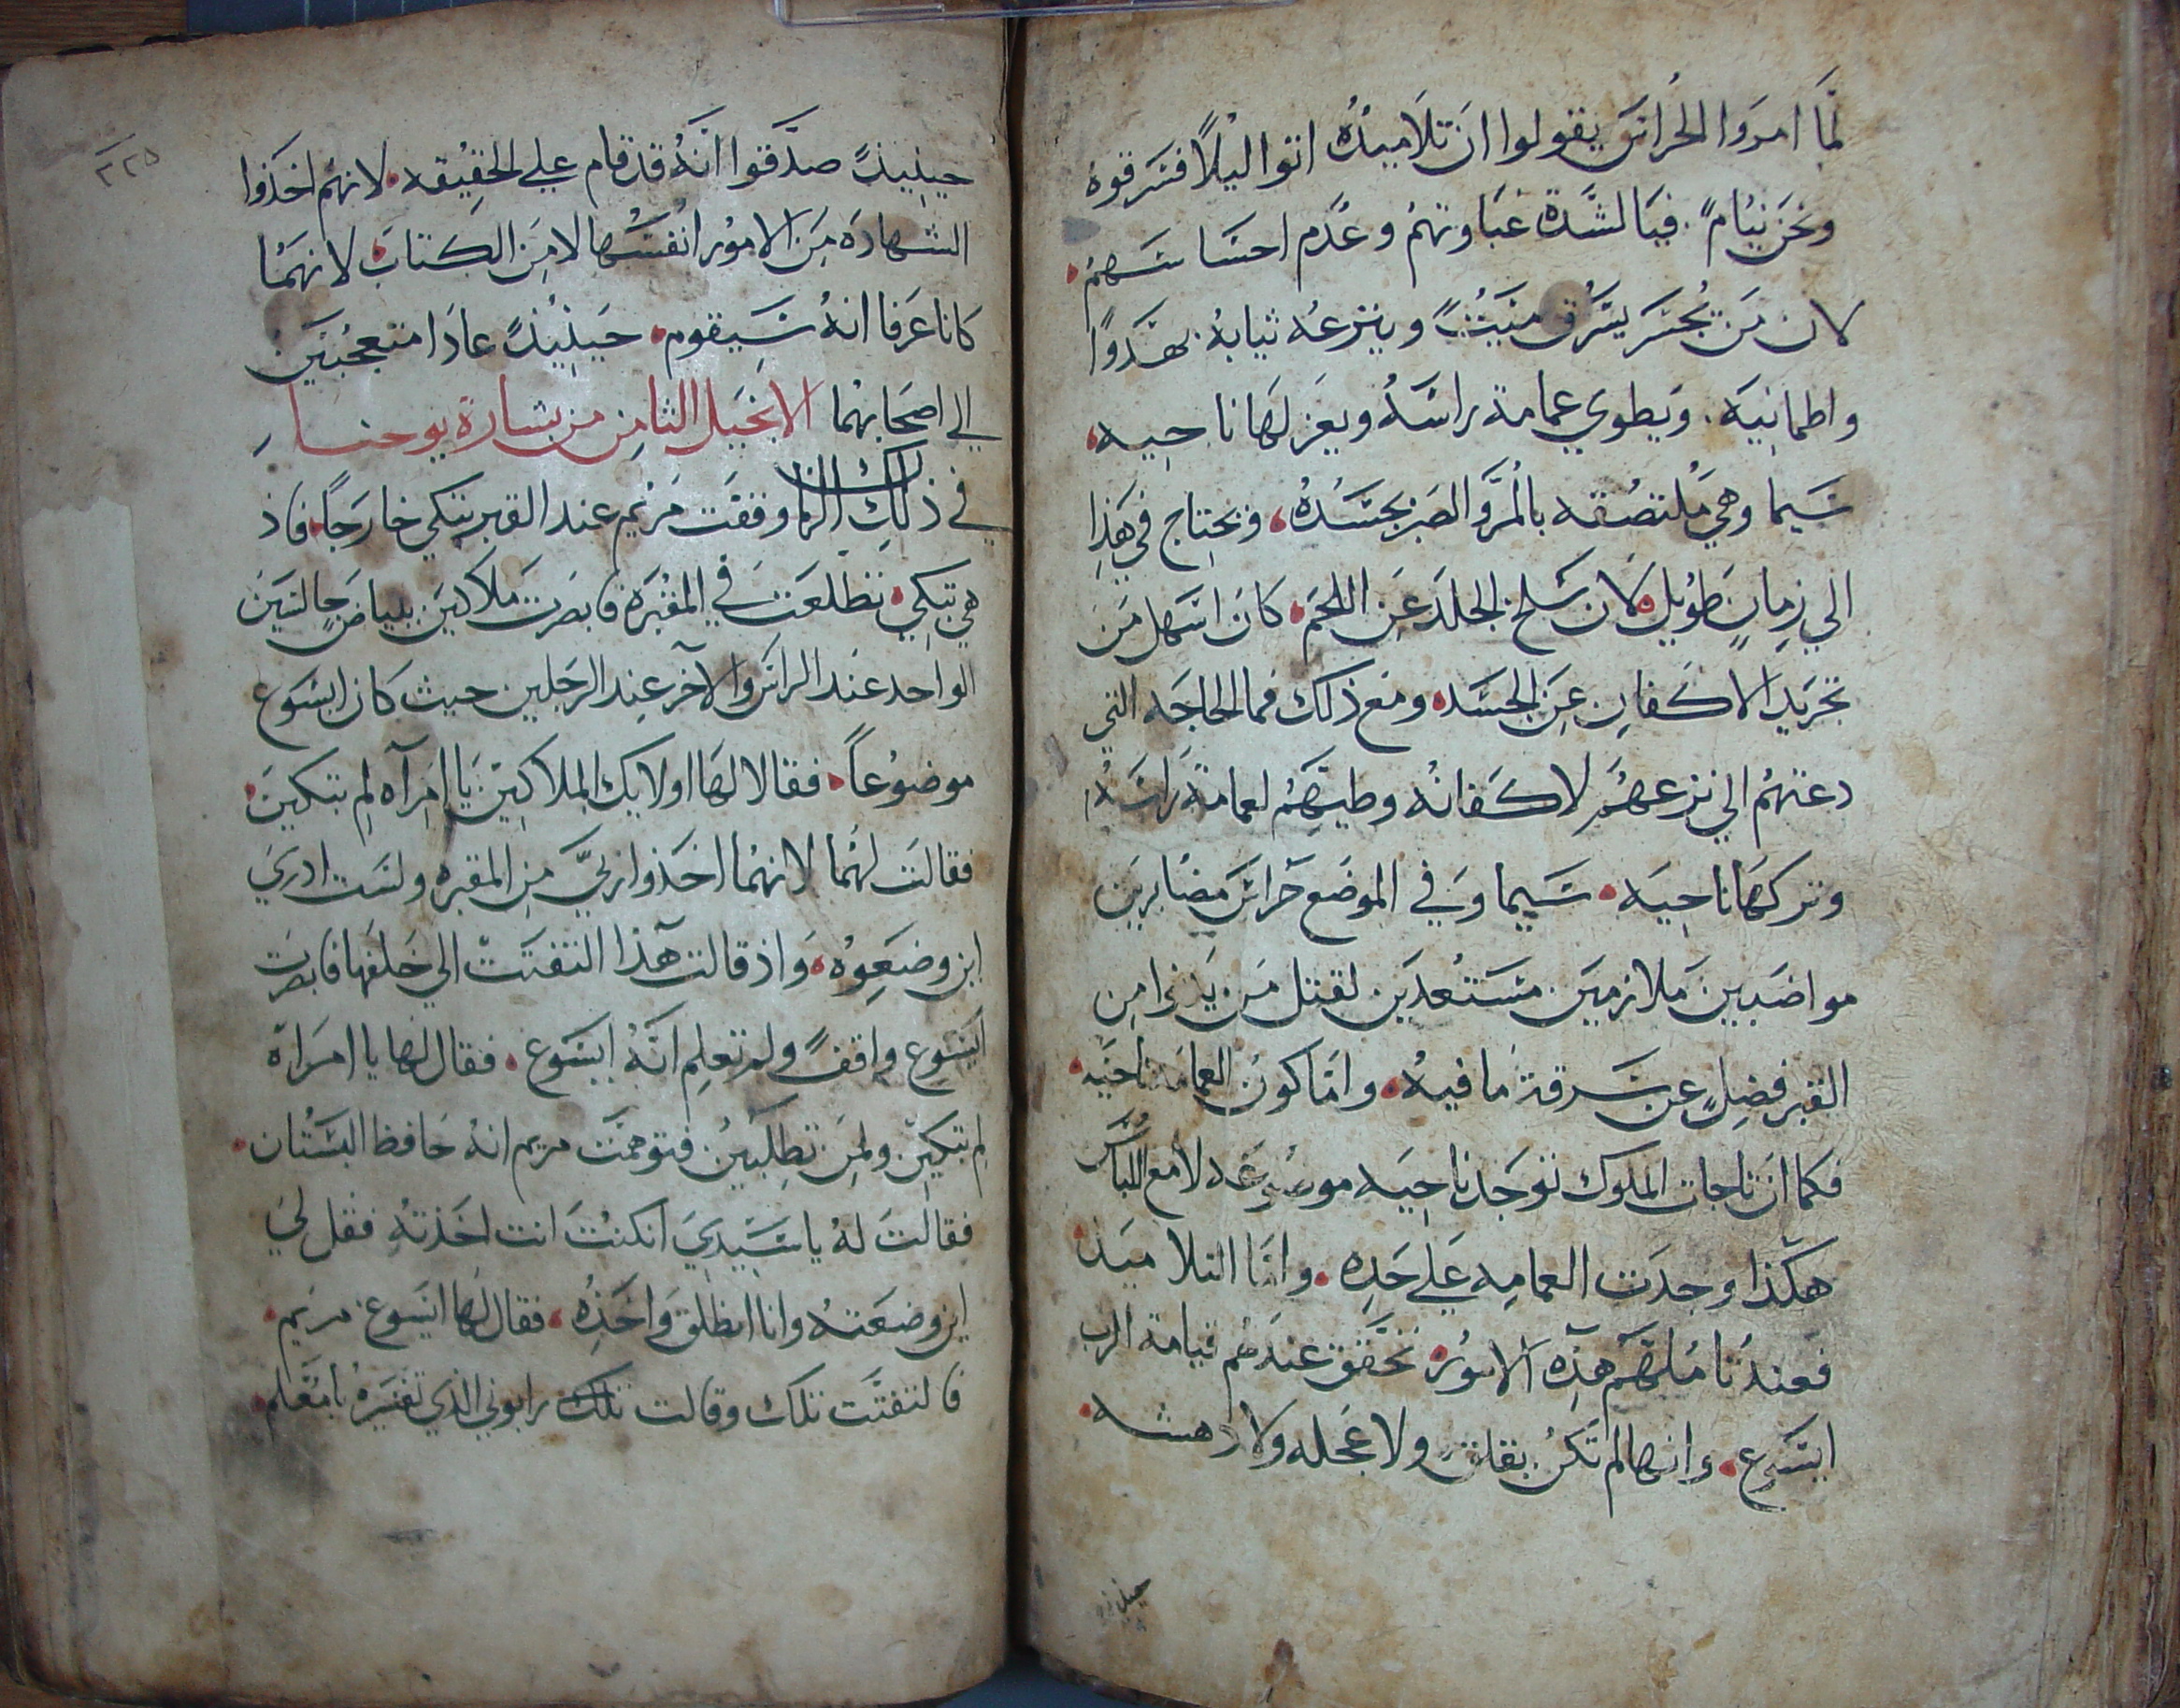 لمَا امروا الحراس يقولوا ان تلاميدُه اتوا ليلاً فسرقوهُ
ونحن نيامٌ. فيا لشدة غباوتهمُ وعدم احساسهمُ
لان من يجسر يسرق ميتٌ وينزعه ثيابهُ بهدوًا
واطمانيه. ويطوي عمامة راسهُ ويعزلها ناحيه
سيما وهي ملتصقه بالمر والصبر بجسدهُ، ويحتاج في هذا
الي زمانٍ طويل لان سلخ الجلد عن اللحم كان اسهل من
تجريد الاكفان عن الجسد ومع ذلك فما الحاجه التي
دعتهمُ الي نزعهم لاكفانهُ وطيهم لعمامة راسهُ
وتركها ناحيه سيما وفي الموضع حراس مضابرين
مواضبين ملازمين مستعدين لقتل من يدنوا من
القبر فضلٍ عن سرقة ما فيهُ واما كون العمامه ناحيه
فكما ان تاجات الملوك توجد ناحيه موضوعه لا مع اللباس
هكذا وجدت العمامه علي حده واما التلاميد
فعند تاملهم هذه الامور تحقق عندهم قيامة الرب
ايسوع وانها لم تكن بقلق ولا عجله ولا دهشه
حينيذ
٢٢٥
حينيذٍ صدَّقوا انَّهُ قد قام علي الحقيقه لانهم اخذوا
الشهادة من الامور انفسُها لا من الكتاب لانهما
كانا عرفا انهُ سيقوم حينيذٍ عادا متعجبين
الي اصحابهما الانجيل الثامن من بشارة يوحنا
في ذلك الزمان وقفت مريم عند القبر تبكي خارجًا، فاذ
هي تبكي تطلعت في المقبرة فابصرت ملاكين بلباض جالسين
الواحد عند الراس والآخر عند الرجلين حيث كان ايسوع
موضوعاً فقالا لها اولايك الملاكين يا امرآه لم تبكين
فقالت لهُما لانهُما اخذوا ربيَّ من المقبره ولست ادري
اين وضعوهُ واذ قالت هذا التفتت الي خلفها فابصرت
ايسوع واقفٌ ولم تعلم انَّهُ ايسوع فقال لها يا امراة
لم تبكين ولمن تطلبين فتوهمت مريم انهُ حافظ البستان
فقالت لهُ يا سيدي ان كنت انت اخذته فقل لي
اين وضعتهُ وانا انطلق واخذهُ، فقال لها ايسوع مريم
فالتفتت تلك وقالت تلك رابوني الذي تفسيرهُ يا معلم